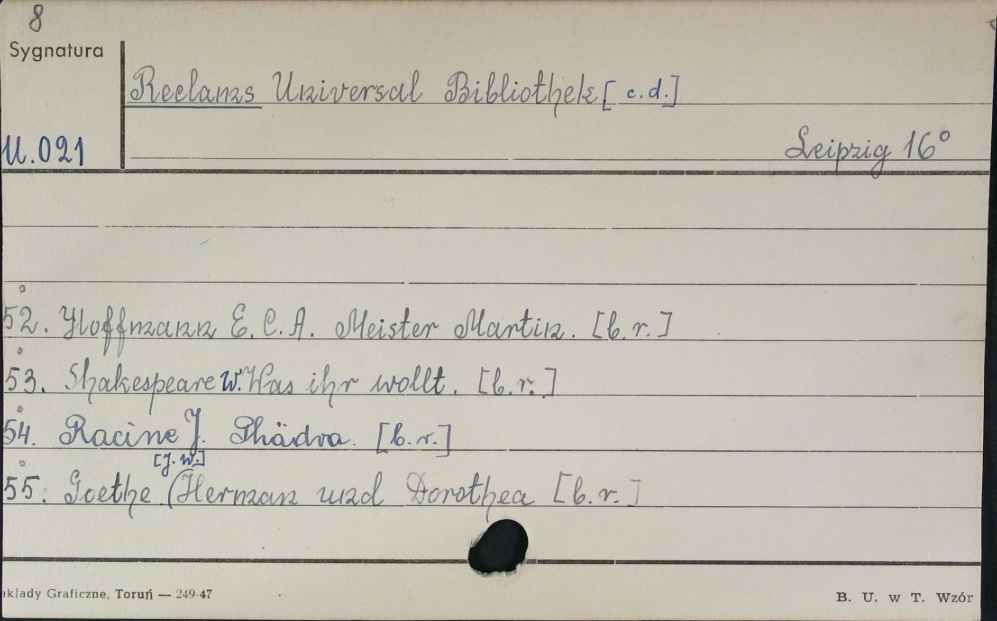 8
Sygnatura
Reclams Universal Bibliothek [c.d.]
U.021
Leipzig 16°
52. Hoffmann E.C.A. Meister Martin. [b.r.]
53. Shakespeare W. Was ihr wollt. [b.r.]
54. Racine J. Phädra. [b.r.]
[J.W.]
55. Goethe (Herman und Dorothea [b.r.]
akłady Graficzne, Toruń — 249-47
B. U. w T. Wzór